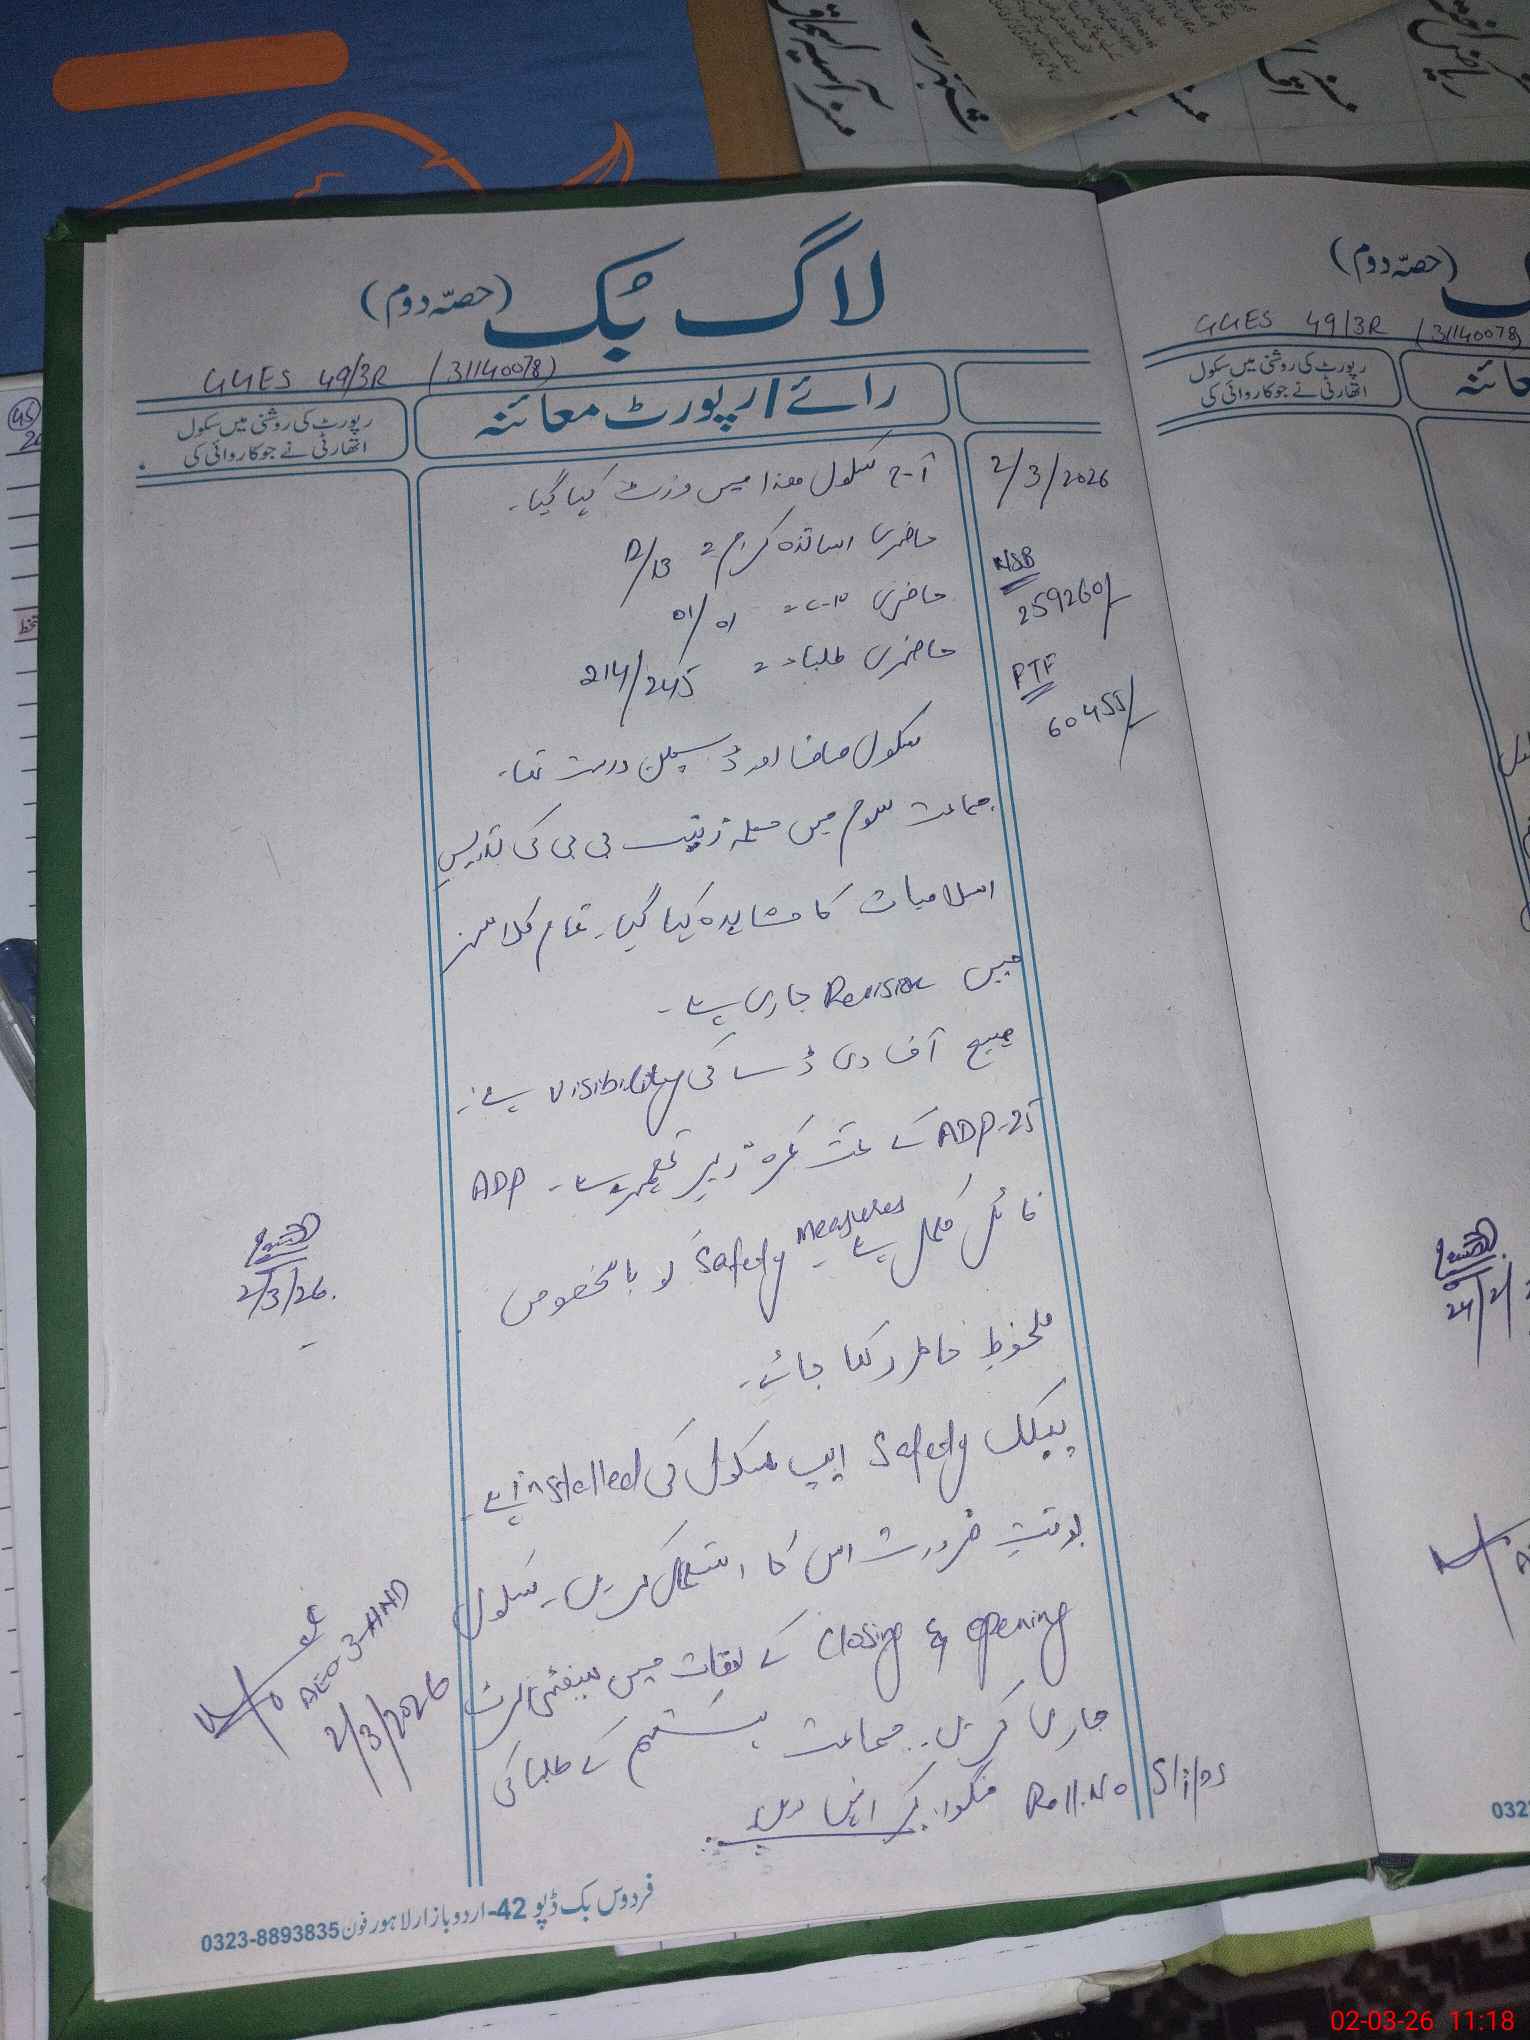 لاگ بُک (حصّہ دوم)
GGES 49/3R (31140078)
رائے/رپورٹ معائنہ
رپورٹ کی روشنی میں سکول
اتھارٹی نے جو کاروائی کی
2/3/2026
آج سکول ھذا میں وزٹ کیا گیا۔
حاضری اساتذہ کرام = 12/13
NSB
259260/-
حاضری = 01/01
حاضری طلباء = 214/245
PTF
60455/-
سکول صاف اور ڈسپلن درست تھا۔
جماعت سوم میں معلمہ زینب بی بی کی تدریس
اسلامیات کا مشاہدہ کیا گیا۔ تمام کلاسز
میں Revision جاری ہے۔
میسج آف دی ڈے کی visibility ہے۔
ADP-25 کے تحت کمرہ زیر تعمیر ہے۔ ADP
فائل مکمل ہے۔ Safety Measures کو بالخصوص
ملحوظِ خاطر رکھا جائے۔
2/3/26.
پبلک Safety ایپ سکول کی installed ہے۔
بوقتِ ضرورت اس کا استعمال کریں۔ سکول
Closing & opening کے اوقات میں سیفٹی الرٹ
جاری کریں۔ جماعت ہشتم کے طلبا کی
Roll.No Slips منگوا کر انہیں دیں۔
AEO 3-HND
2/3/2026
فردوس بک ڈپو 42-اردو بازار لاہور فون 0323-8893835
(حصّہ دوم)
GGES 49/3R (31140078)
رپورٹ کی روشنی میں سکول
اتھارٹی نے جو کاروائی کی
02-03-26 11:18